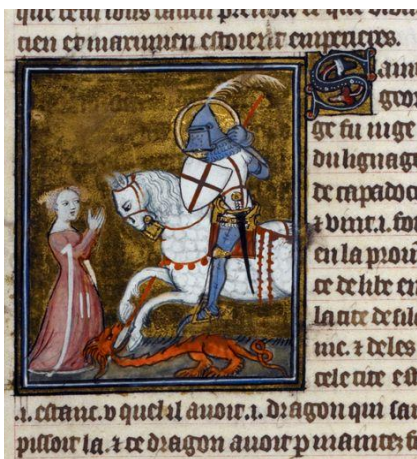 que
tien et maximien estoient empereres.
Saint
geor
ge fu nige
du lignage
de capadoce
⁊ vint .i. foi
en la prou
ce de libe en
la cite de sile
ne. ⁊ deles
cele cite est
.i. estanc. v quel il auoit .i. dragon qui
pissoit la. ⁊ ce dragon auoit p